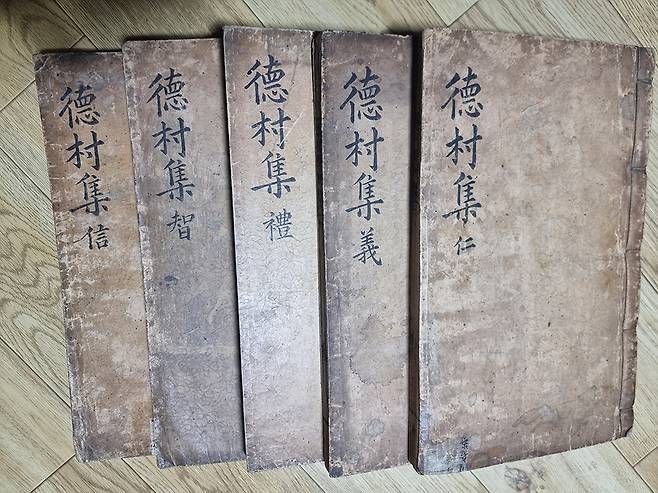 德村集 仁
德村集 義
德村集 禮
德村集 智
德村集 信